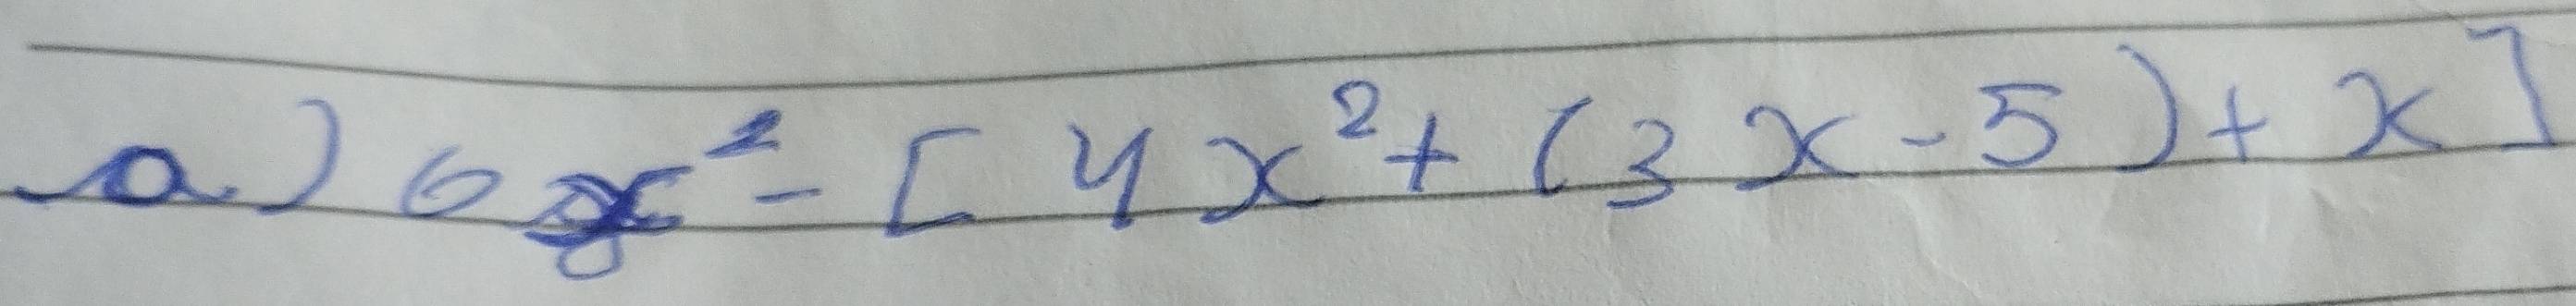 a) 6x² - [ 4x² + (3x - 5) + x ]